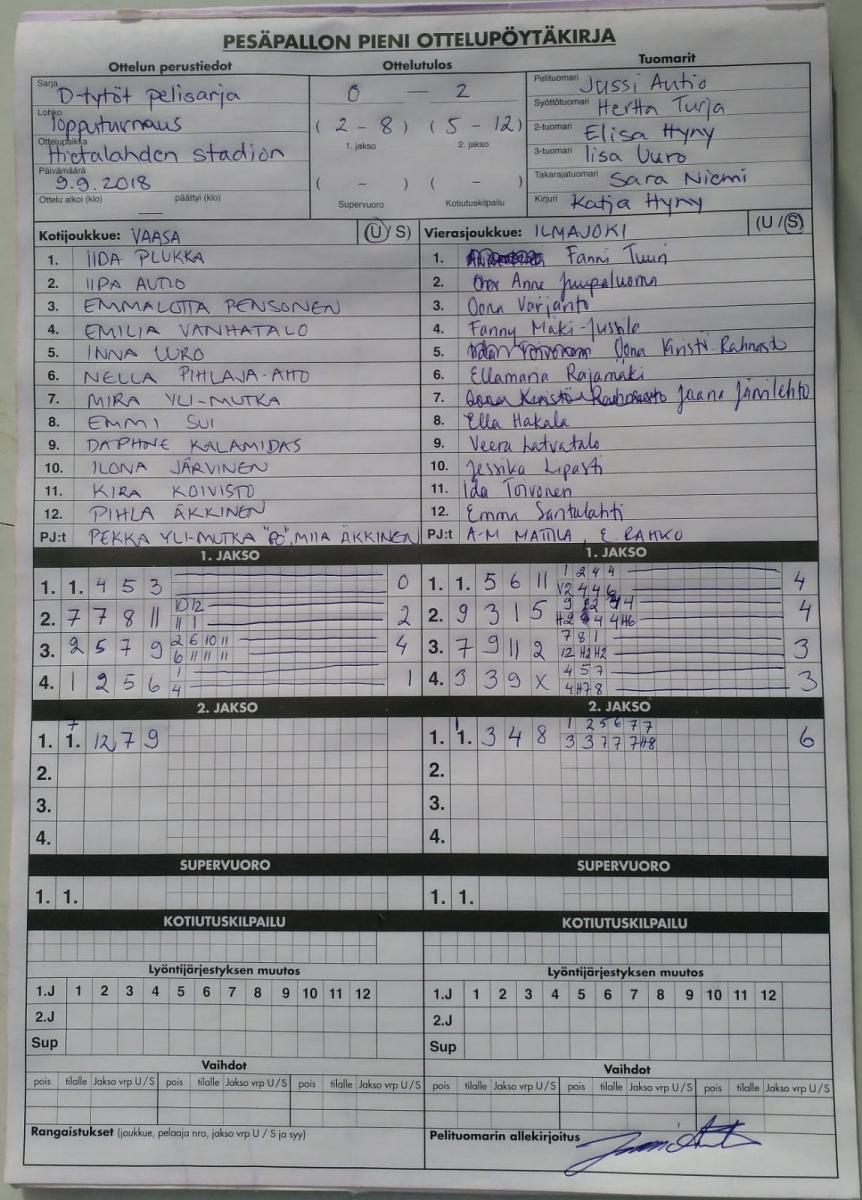 PESÄPALLON PIENI OTTELUPÖYTÄKIRJA
Ottelun perustiedot
Sarja D-tytöt pelisarja
Lohko lopputurnaus
Ottelupaikka Hietalahden stadion
Päivämäärä 9.9.2018
Ottelu alkoi (klo) päättyi (klo)
Ottelutulos
0 — 2
( 2 - 8 ) ( 5 - 12 )
1. jakso 2. jakso
( - ) ( - )
Supervuoro Kotiutuskilpailu
Tuomarit
Pelituomari Jussi Autio
Syöttötuomari Hertta Turja
2-tuomari Elisa Hyny
3-tuomari Iisa Uuro
Takarajatuomari Sara Niemi
Kirjuri Katja Hyny
Kotijoukkue: VAASA (U/S)
1. IIDA PLUKKA
2. IIPA AUTIO
3. EMMALOTTA PENSONEN
4. EMILIA VANHATALO
5. INNA UURO
6. NELLA PIHLAJA-AHO
7. MIRA YLI-MUTKA
8. EMMI SUI
9. DAPHNE KALAMIDAS
10. ILONA JÄRVINEN
11. KIRA KOIVISTO
12. PIHLA ÄKKINEN
PJ:t PEKKA YLI-MUTKA "PO", MIIA ÄKKINEN
Vierasjoukkue: ILMAJOKI (U/S)
1. Fanni Tuuri
2. Anne Juupaluoma
3. Oona Varjanto
4. Fanny Mäki-Jussila
5. Oona Kiristi-Rahnasto
6. Ellamaria Rajamäki
7. Jaana Järvilehto
8. Ella Hakala
9. Veera Latvatalo
10. Jessika Lipasti
11. Ida Toivonen
12. Emma Santulahti
PJ:t A-M MATTILA, E. RAHKO
1. JAKSO
1. 1. 4 5 3 0
2. 7 7 8 11 10 12 2
11 1
3. 2 5 7 9 2 6 10 11 4
6 11 11 11
4. 1 2 5 6 1 1
4
1. JAKSO
1. 1. 5 6 11 1 2 4 4 4
V2 4 4 6
2. 9 3 1 5 4
3. 7 9 11 2 7 8 1 3
12 H2 H2
4. 3 3 9 X 4 5 7 3
4 H7 8
2. JAKSO
1. 1. 12 7 9
2.
3.
4.
2. JAKSO
1. 1. 3 4 8 1 2 5 6 7 7 6
3 3 7 7 7 H8
2.
3.
4.
SUPERVUORO
1. 1.
SUPERVUORO
1. 1.
KOTIUTUSKILPAILU
KOTIUTUSKILPAILU
Lyöntijärjestyksen muutos
1.J 1 2 3 4 5 6 7 8 9 10 11 12
2.J
Sup
Lyöntijärjestyksen muutos
1.J 1 2 3 4 5 6 7 8 9 10 11 12
2.J
Sup
Vaihdot
pois tilalle Jakso vrp U/S pois tilalle Jakso vrp U/S pois tilalle Jakso vrp U/S
Vaihdot
pois tilalle Jakso vrp U/S pois tilalle Jakso vrp U/S pois tilalle Jakso vrp U/S
Rangaistukset (joukkue, pelaaja nro, jakso vrp U / S ja syy)
Pelituomarin allekirjoitus